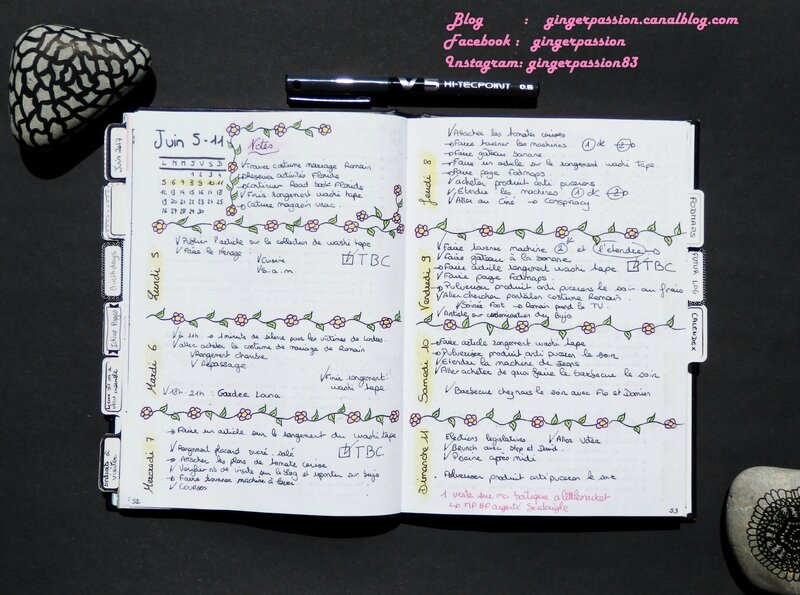 Blog : gingerpassion.canalblog.com
Facebook : gingerpassion
Instagram: gingerpassion83
V5 HI-TECPOINT 0.5
Juin 2017
Birthdays
Silent Pages
Endroits à visiter
FODMAPS
FUTUR LOG
CALENDEX
Juin 5-11
L M M J V S D
1 2 3 4
5 6 7 8 9 10 11
12 13 14 15 16 17 18
19 20 21 22 23 24 25
26 27 28 29 30
Notes
Trouver costume mariage Romain
Réserver activités Floride
Continuer Road book Floride
Finir rangement washi tape
Cature magasin vrac.
Lundi 5
Publier l'article sur la collection de washi tape
Faire le ménage
Cuisine
TBC
Mardi 6
à 11h → 1 minute de silence pour les victimes de Londres.
aller acheter le costume de mariage de Romain
Rangement chambre
Repassage
Finir rangement washi tape
18h-21h : Garder Luna
Mercredi 7
Faire un article sur le rangement du washi tape
Rangement placard sucré salé
TBC
Attacher les plans de tomate cerise
Vérifier nb de visite sur le blog et reporter sur bujo
Faire tourner machine à laver
Courses
52
Jeudi 8
Attacher les tomates cerises
Faire tourner les machines 1 de 2
Faire gâteau banane
Faire un article sur le rangement washi tape
Faire page Fodmaps
acheter produit anti pucerons
Etendre les machines 1 de 2
Aller au Ciné → Conspiracy
Vendredi 9
Faire tourner machine 2 et l'étendre
Faire gâteau à la banane
Faire article rangement washi tape
TBC
Faire page Fodmaps
Pulveriser produit anti pucerons le soir au frais
Aller chercher pantalon costume Romain
Soirée Foot → Romain prend la TV.
Article sur customisation du Bujo
Samedi 10
Faire article rangement washi tape
Pulveriser produit anti puceron le soir
Etendre la machine de jeans
Aller acheter de quoi faire le barbecue le soir
Barbecue chez nous le soir avec Flo et Damien
Dimanche 11
Elections legislatives
Aller Voter
Brunch avec Step et David
Piscine après midi
Pulveriser produit anti puceron le soir
1 vente sur ma boutique alittlemarket
53